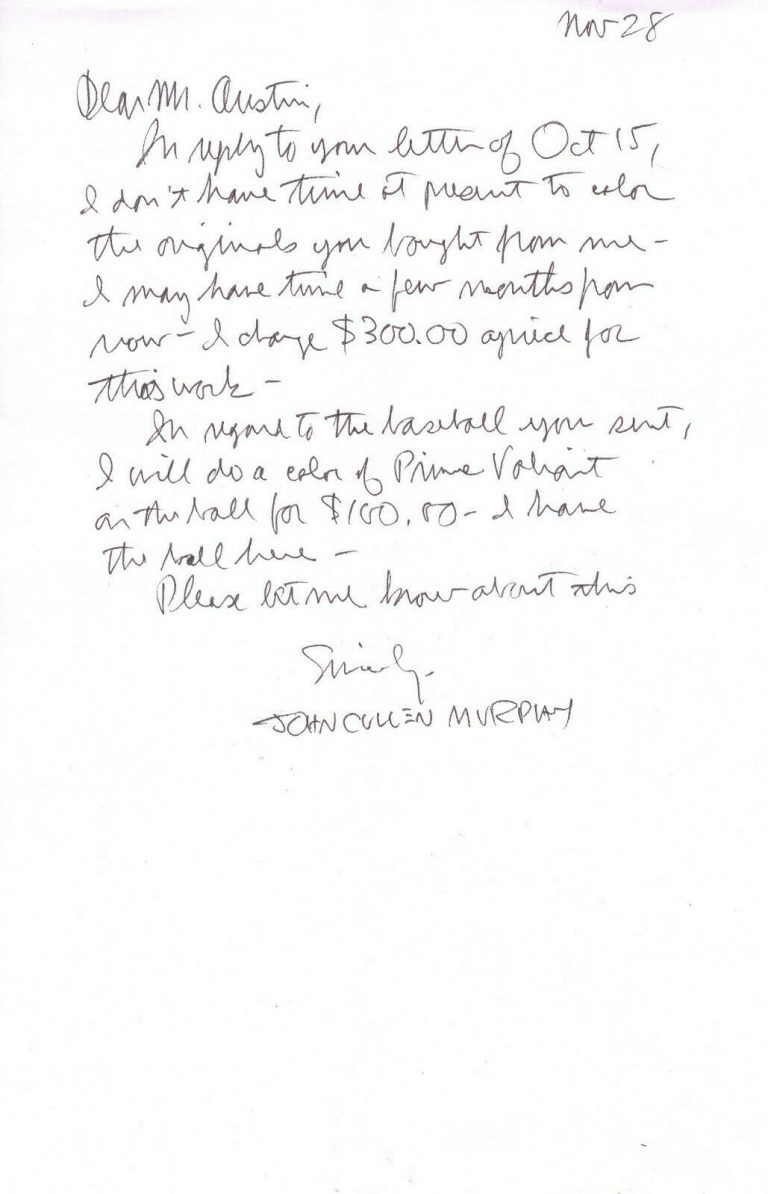 Nov 28
Dear Mr. Austin,
In reply to your letter of Oct 15,
I don't have time at present to color
the originals you bought from me -
I may have time a few months from
now - I charge $300.00 apiece for
this work -
In regard to the baseball you sent,
I will do a color of Prince Valiant
on the ball for $100.00 - I have
the ball here -
Please let me know about this
Sincerely.
JOHN CULLEN MURPHY